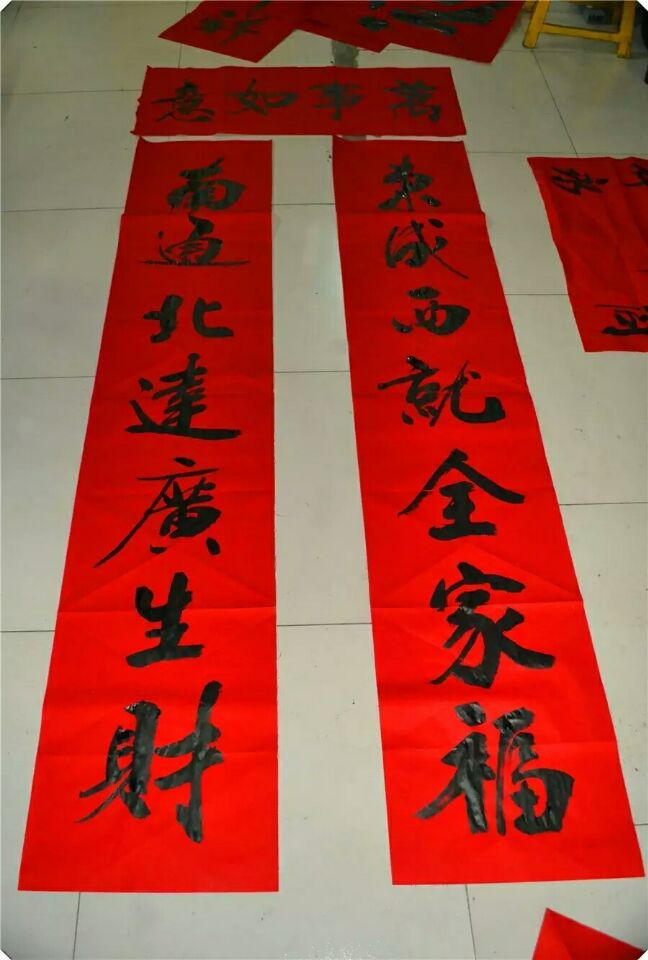 萬事如意
東成西就全家福
南通北達廣生財